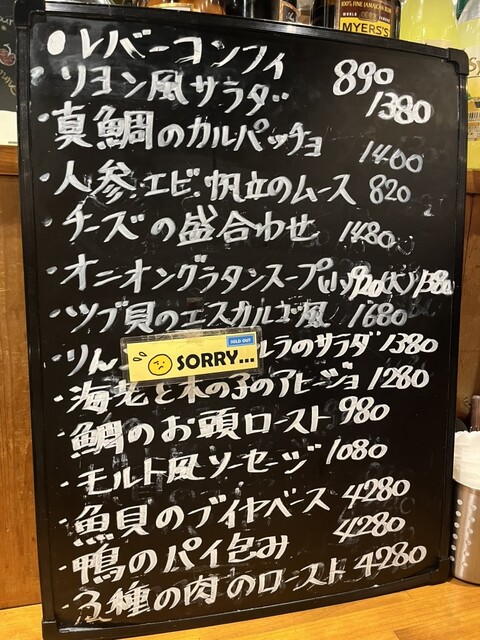 100% FINE JAMAICAN RUM
MYERS'S
●レバーコンフィ 890
・リヨン風サラダ 1380
・真鯛のカルパッチョ 1400
・人参.エビ.帆立のムース 820
・チーズの盛合わせ 1480
・オニオングラタンスープ(小)920(大)1380
・ツブ貝のエスカルゴ風 1680
・りん ルラのサラダ 1380
SOLD OUT
SORRY...
・海老と木の子のアヒージョ 1280
・鯛のお頭ロースト 980
・モルト風ソーセージ 1080
・魚貝のブイヤベース 4280
・鴨のパイ包み 4280
・3種の肉のロースト 4280